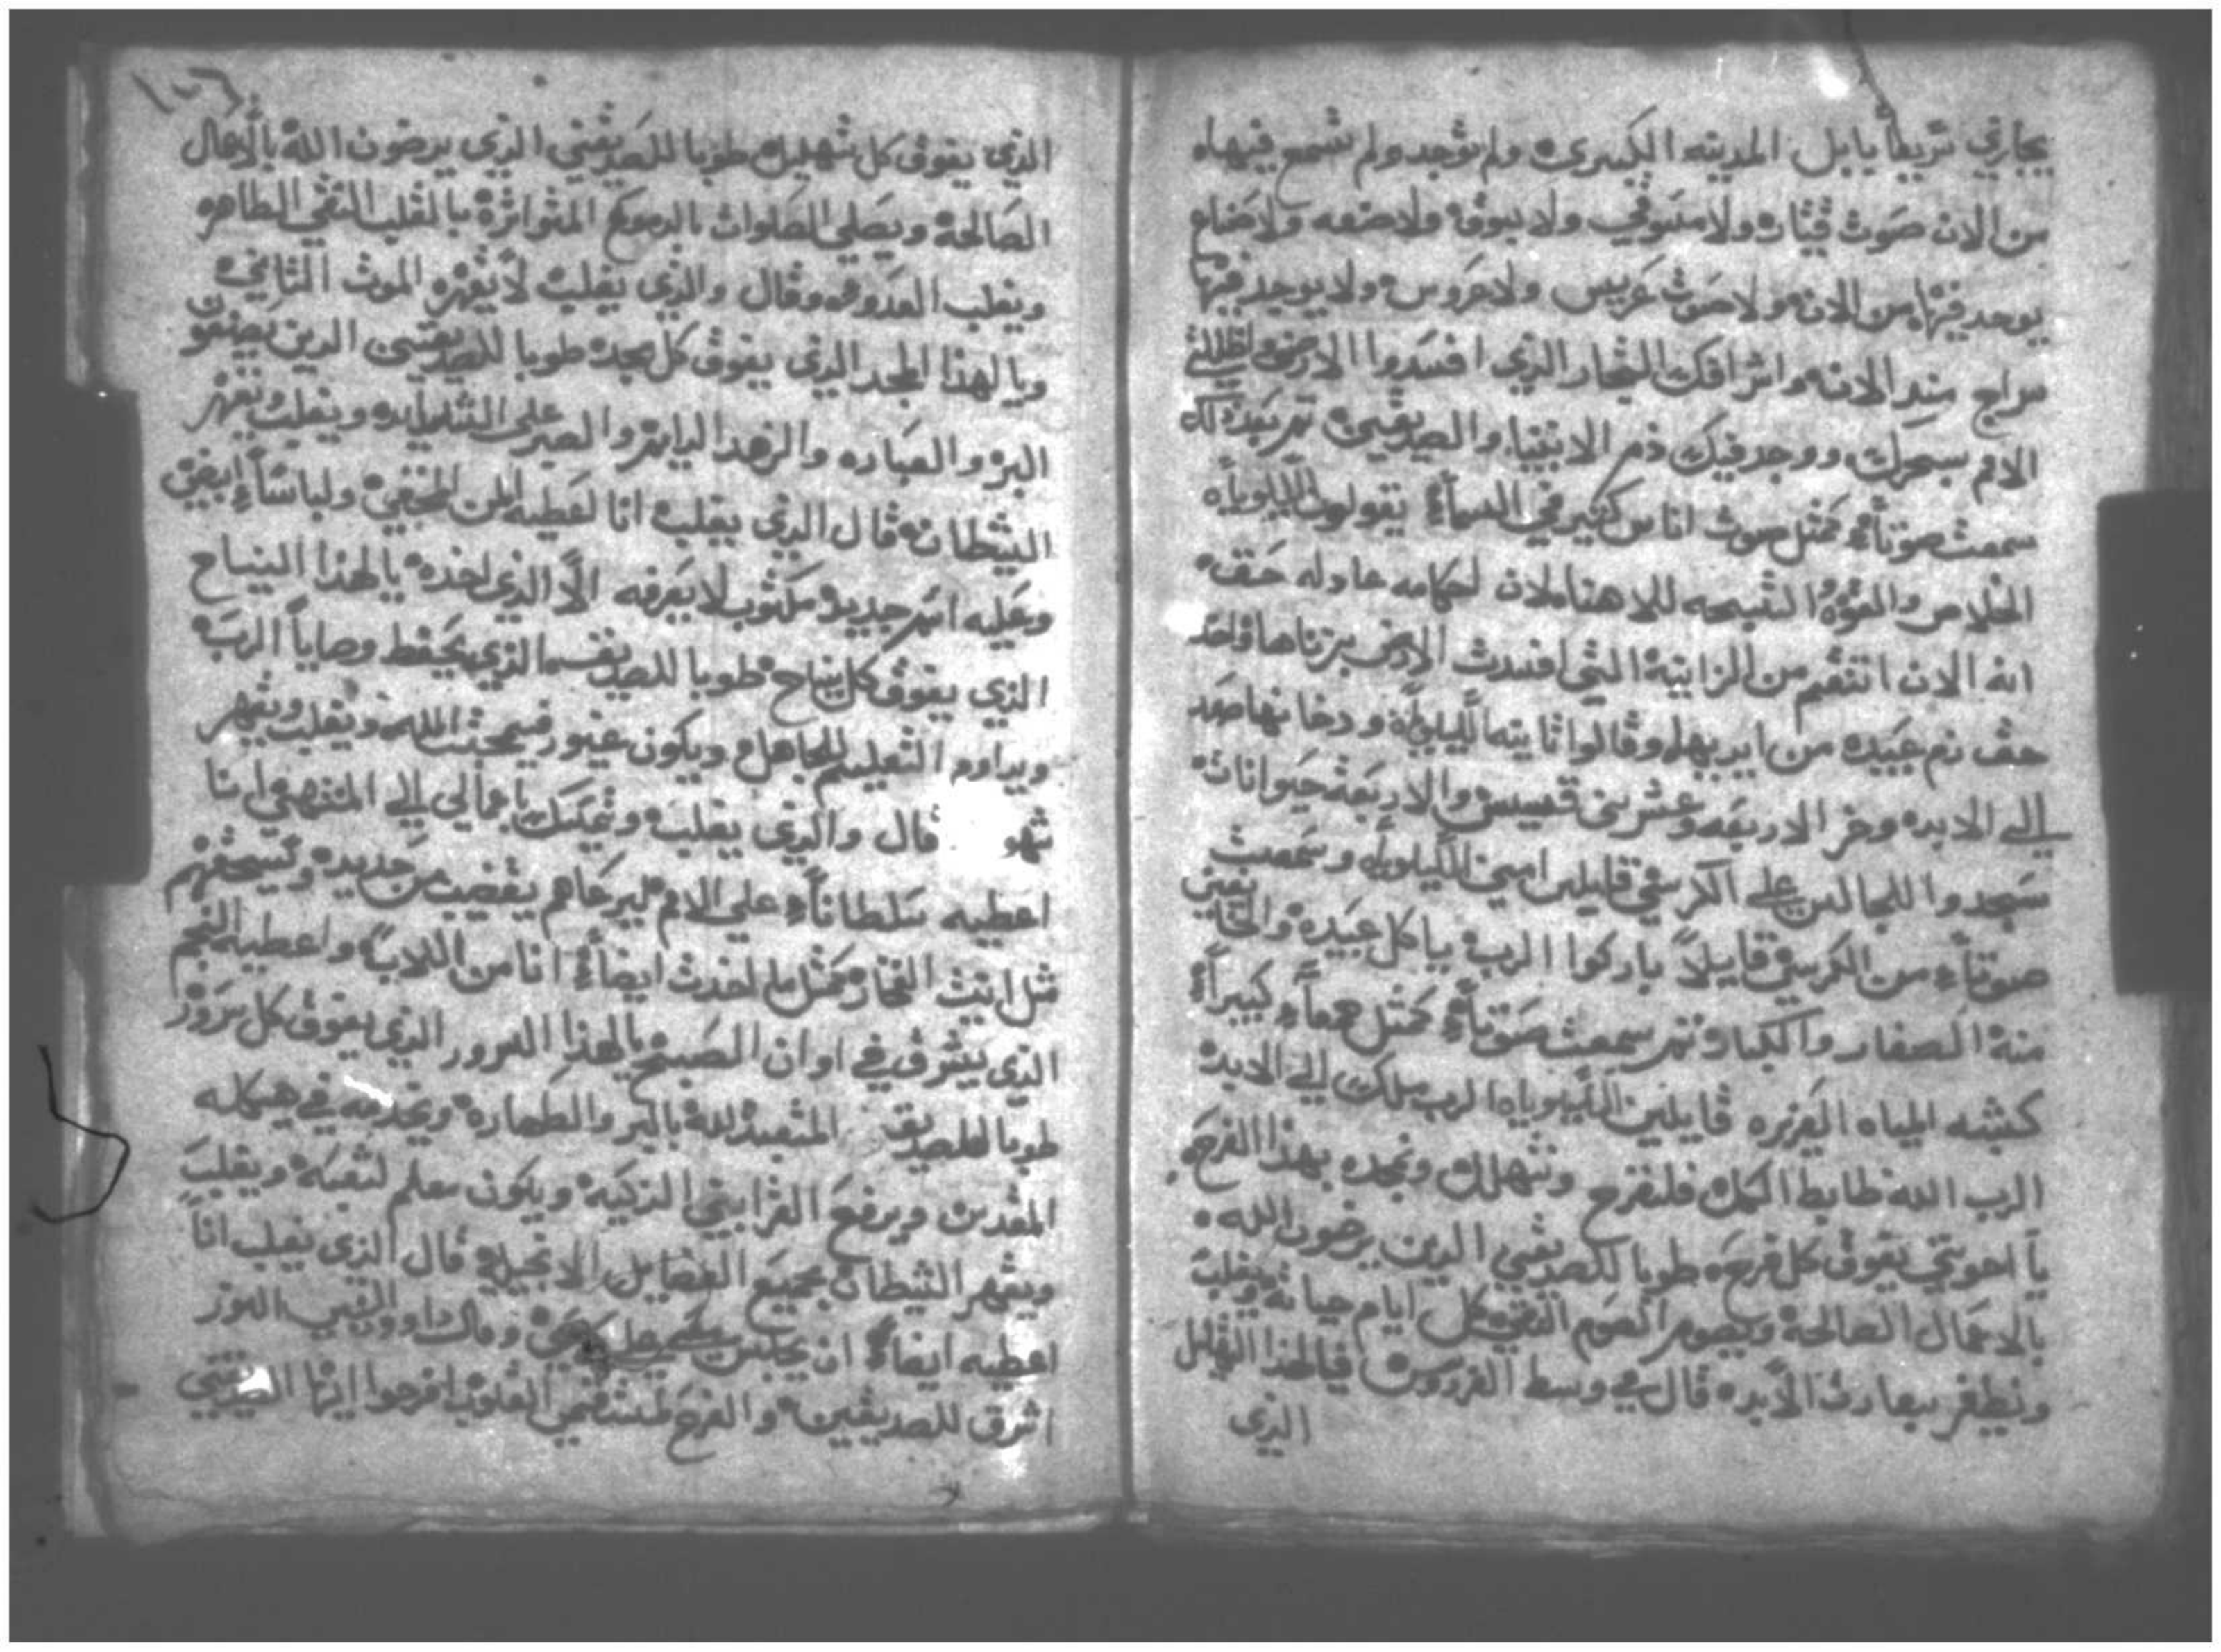 يجازي تريقاً يا بابل المدينه الكبيرى ولم توجد ولم تسمع فيها
من الان صوت قيتار ولا متنوقي ولا ببوق ولا صنعه ولا صناع
يوجد فيها من الان ولا صوت عريس ولا عروس ولا يوجد فيها
سراج منذ الان واشرافك التجار الذي افسدوا الارض
الامم بسحرك ووجد فيك دم الانبياء والصديقين ثم بعد ذلك
سمعت صوتاً كمثل صوت اناس كثير في السماء يقولون الليلوياه
الخلاص والقوه التسبحه للاهنا لان احكامه عادله حق
انه الان انتقم من الزانية التي افسدت الارض بزناها واخد
حق دم عبيده من ايديها وقالوا ثانيه الليلويا ودخانها صعد
الي الابد وخر الاربعه وعشرين قسيس والاربعة حيوانات
سجدوا للجالس علي الكرسي قايلين امين الليلويا وسمعت
صوتاً من الكرسي قايلاً باركوا الرب يا كل عبيده والخايفين
منه الصغار والكبار ثم سمعت صوتاً كمثل كبيراً
كشبه المياه الغزيره قايلين الليلوياه الرب ملك الي الابد
الرب الله ظابط الكل فلنفرح ونتهلل ونمجده بهذا الفرح
يا اخوتي يفوق كل فرح طوبا للصديقين الدين يرضون الله
بالاعمال الصالحة ويصوم الصوم النقي كل ايام حياته ويغلب
ويظفر بسعادت الابد قال في وسط الفردوس فيا لهذا التهليل
الذي
١٥٦
الذي يفوق كل تهليل طوبا للصديقين الذي يرضون الله بالاعمال
الصالحة ويصلي الصلوات بالدموع المتواترة بالقلب النقي الطاهر
ويغلب العدو وقال والذي يغلب لا يقهره الموت الثاني
ويا لهذا المجد الذي يفوق كل مجد طوبا للصديقين الدين يصنعون
البر والعباده والزهد الدايم والصبر على الشدايد ويغلب ويقهر
الشيطان قال الذي يغلب انا اعطيه المن المخفي ولباساً ابيض
وعليه اسم جديد مكتوب لا يعرفه الا الذي اخذه يا لهذا النياح
الذي يفوق كل نياح طوبا للصديقين الذي يحفظ وصايا الرب
ويداوم التعليم للجاهل ويكون غيور في محبت الله ويغلب ويقهر
قال والذي يغلب ويمسك باعمالي الي المنتهي انا
اعطيه سلطاناً علي الامم ليرعاهم بقضيب من حديد ويسحقهم
مثل انيت الفخار كمثل ما اخدت ايضاً انا من الاب واعطيه النجم
الذي يشرق في اوان الصبح يا لهذا السرور الذي يفوق كل سرور
طوبا للصديق المتعبد لله بالبر والطهاره ويخدمه في هيكله
المقدس ويرفع القرابين الزكية ويكون معلم لشعبه ويغلب
ويقهر الشيطان بجميع الفضايل الانجيليه قال الذي يغلب انا
اعطيه ايضاً ان يجلس معي علي وقال داوود النبي النور
اشرق للصديقين والفرح لمستقيمي القلوب افرحوا ايها الصديقين